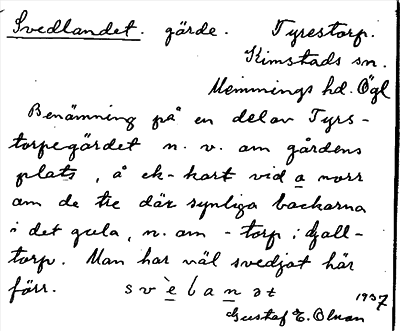 Svedlandet. gärde. Tyrestorp.
Kimstads sn.
Memmings hd. Ögl
Benämning på en del av Tyrs-
torpegärdet n. v. om gårdens
plats, å ek-kart vid a norr
om de tre där synliga backarna
i det gula, n. om - torp i Fjall-
torp. Man har väl svedjat här
förr. svèlanət 1937
Gustaf E. Olsson